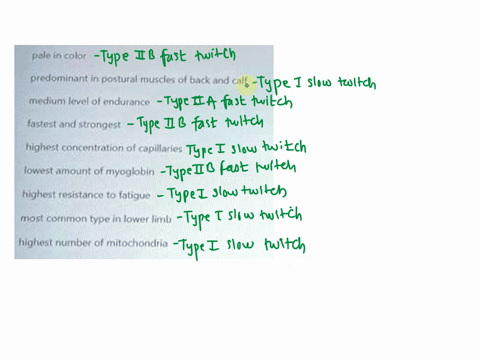 pale in color -Type IIB fast twitch
predominant in postural muscles of back and calf -Type I slow twitch
medium level of endurance -Type IIA fast twitch
fastest and strongest - Type IIB fast twitch
highest concentration of capillaries Type I slow twitch
lowest amount of myoglobin -Type IIB fast twitch
highest resistance to fatigue - Type I slow twitch
most common type in lower limb -Type I slow twitch
highest number of mitochondria -Type I slow twitch